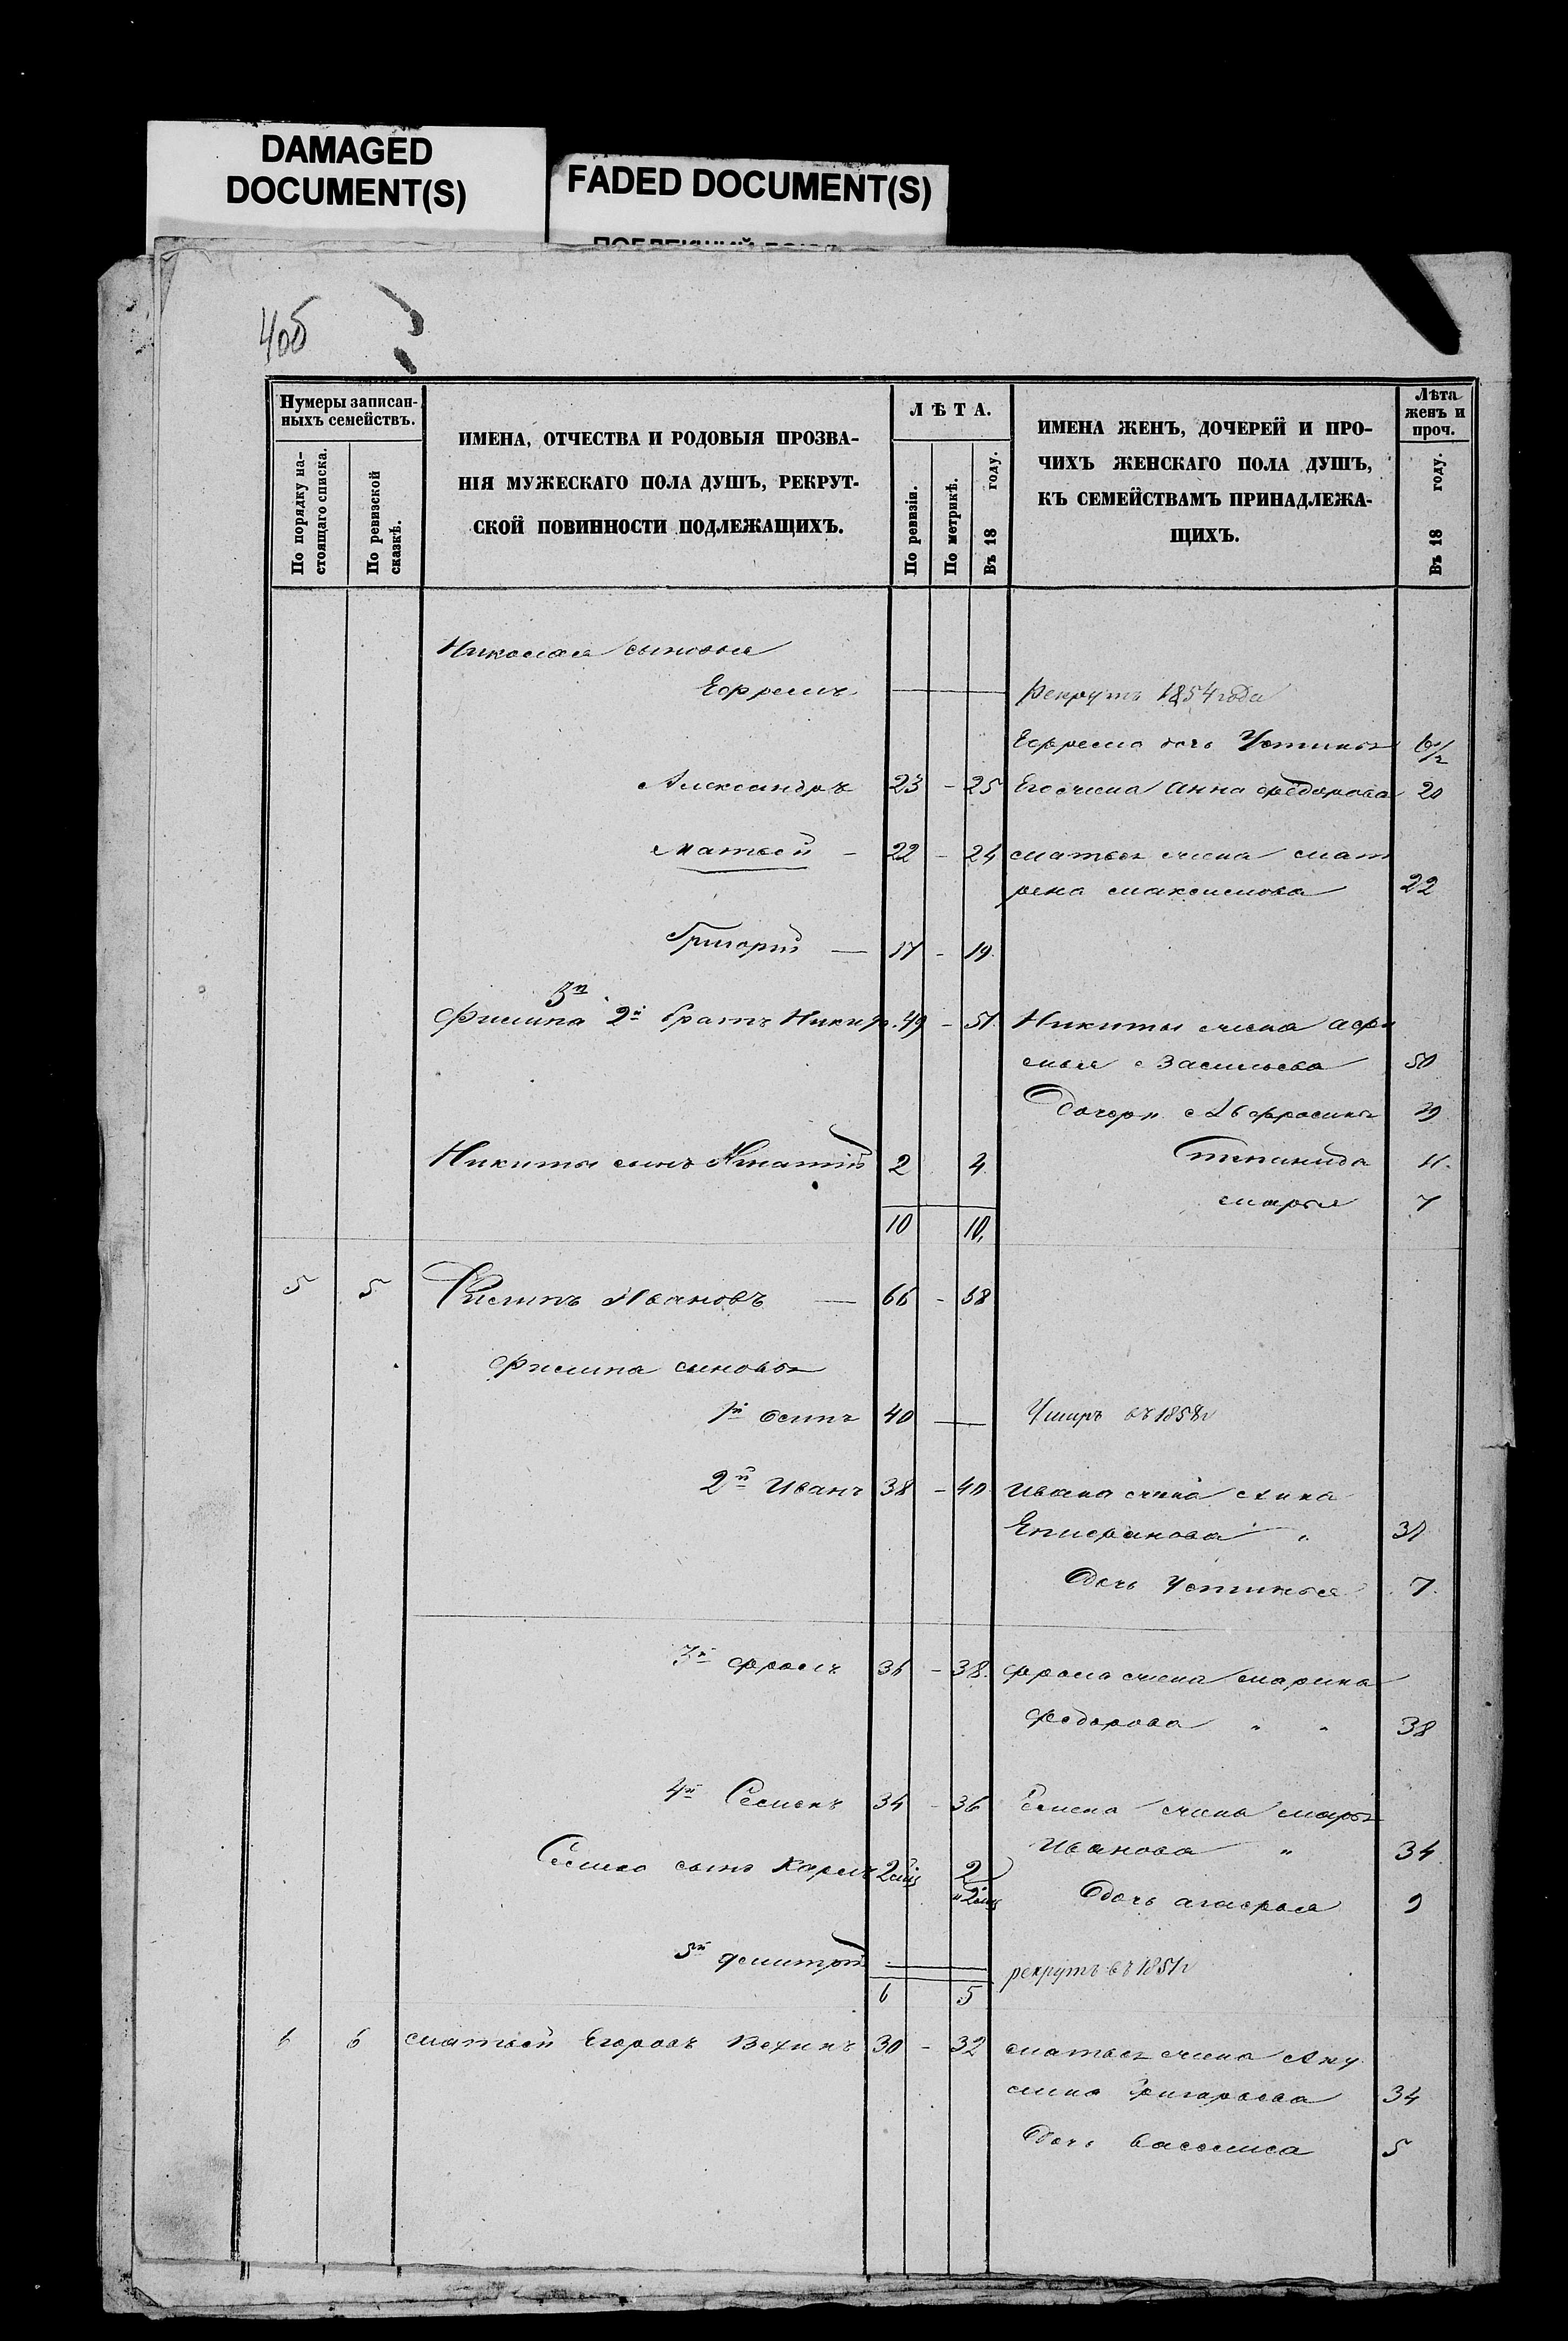 DAMAGED
DOCUMENT(S)
FADED DOCUMENT(S)
4об
Нумеры записан-
ныхъ семействъ.
По порядку на-
стоящаго списка.
По ревизской
сказкѣ.
ИМЕНА, ОТЧЕСТВА И РОДОВЫЯ ПРОЗВА-
НІЯ МУЖЕСКАГО ПОЛА ДУШЪ, РЕКРУТ-
СКОЙ ПОВИННОСТИ ПОДЛЕЖАЩИХЪ.
ЛѢТА.
По ревизіи.
По метрикѣ.
Въ 18 году.
ИМЕНА ЖЕНЪ, ДОЧЕРЕЙ И ПРО-
ЧИХЪ ЖЕНСКАГО ПОЛА ДУШЪ,
КЪ СЕМЕЙСТВАМЪ ПРИНАДЛЕЖА-
ЩИХЪ.
Лѣта
женъ и
проч.
Въ 18 году.
Николая сыновья
Ефремъ — Рекрутъ 1854 года
Ефрема дочь Устинья
Александръ 23 - 25 Его жена Анна Федорова 20
Матвей - 22 - 24 Матвея жена Мат
рена Максимова 22
Григорій — 17 - 19
3й
Филипа 2й братъ Никита 49 - 51 Никиты жена Афи
мья Васильева 50
Дочери Ефросинья 19
Никиты сынъ Игнатій 2 4 Степанида 11
Марья 7
10 10
5 5 Филипъ Ивановъ — 66 - 68
Филипа сыновья
1й Осипъ 40 — Умиръ въ 1858г
2й Иванъ 38 - 40 Ивана жена Акулина
Епифанова " 37
Дочь Устинья 7
3й Фролъ 36 - 38 Фрола жена Марина
Федорова " " 38
4й Семенъ 34 - 36 Семена жена Марья
Иванова " 34
Семена сынъ Карпъ 2 мѣс 2
и 2 мѣс Дочь Агафья 9
5й Дмитрій — рекрутъ въ 1851г
6 5
6 6 Матвей Егоровъ 30 - 32 Матвея жена Аку
лина Григорьева 34
Дочь Василиса 5